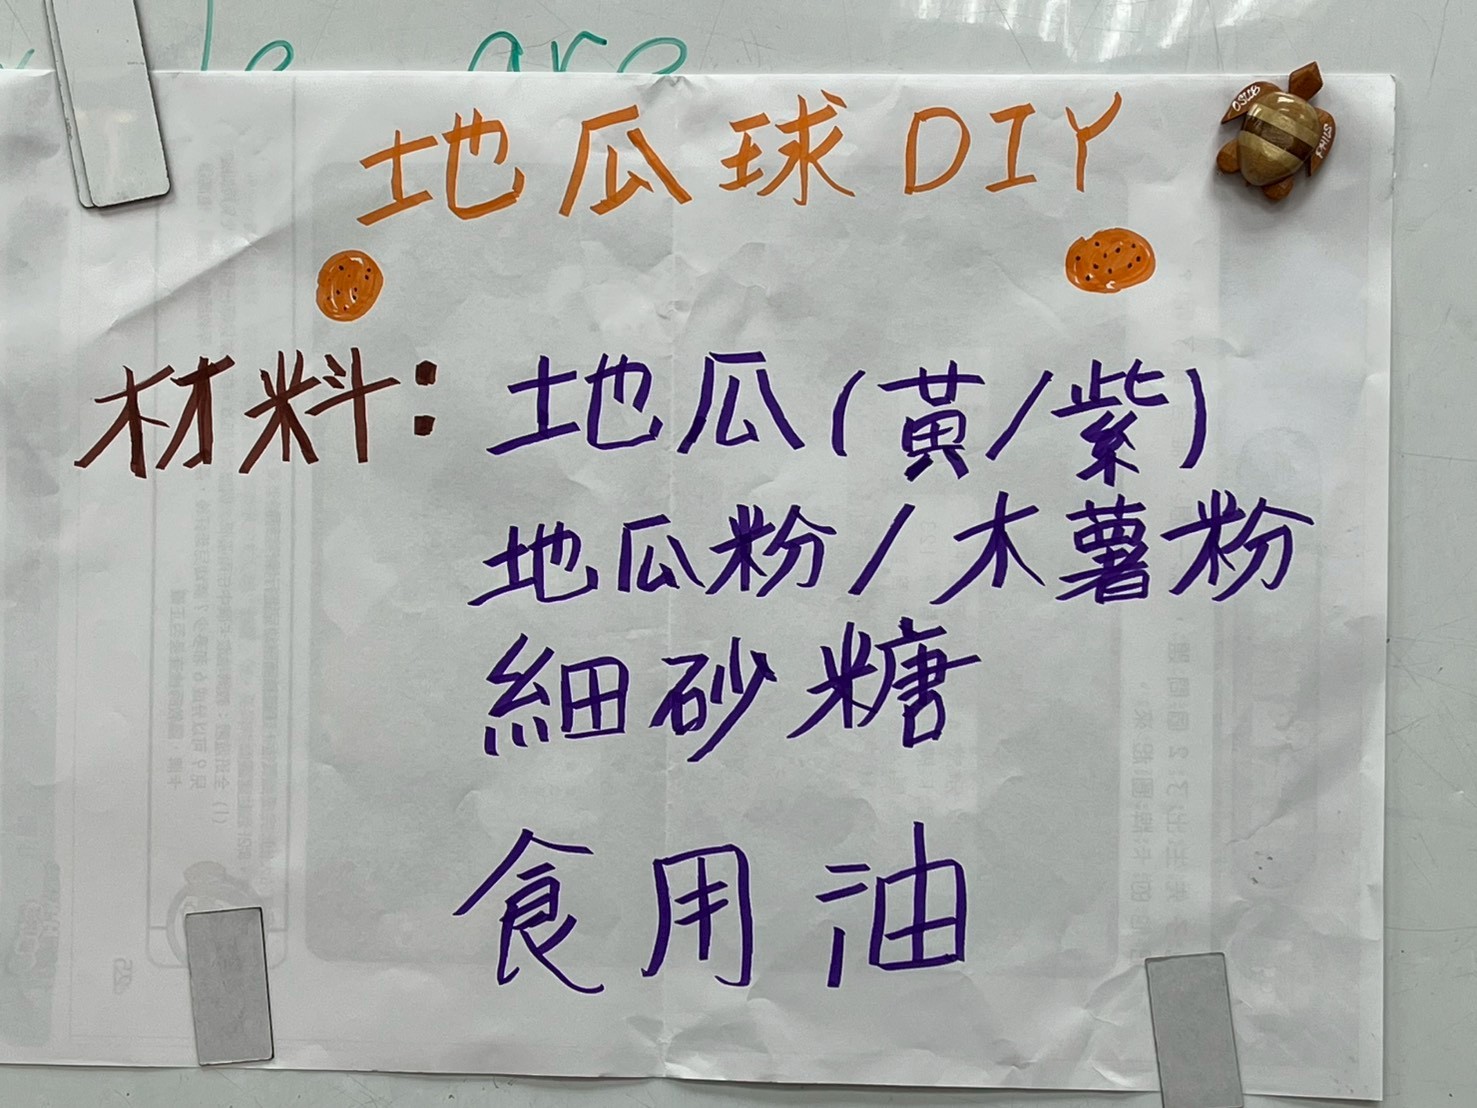 are
地瓜球DIY
材料:地瓜(黃/紫)
地瓜粉/木薯粉
細砂糖
食用油